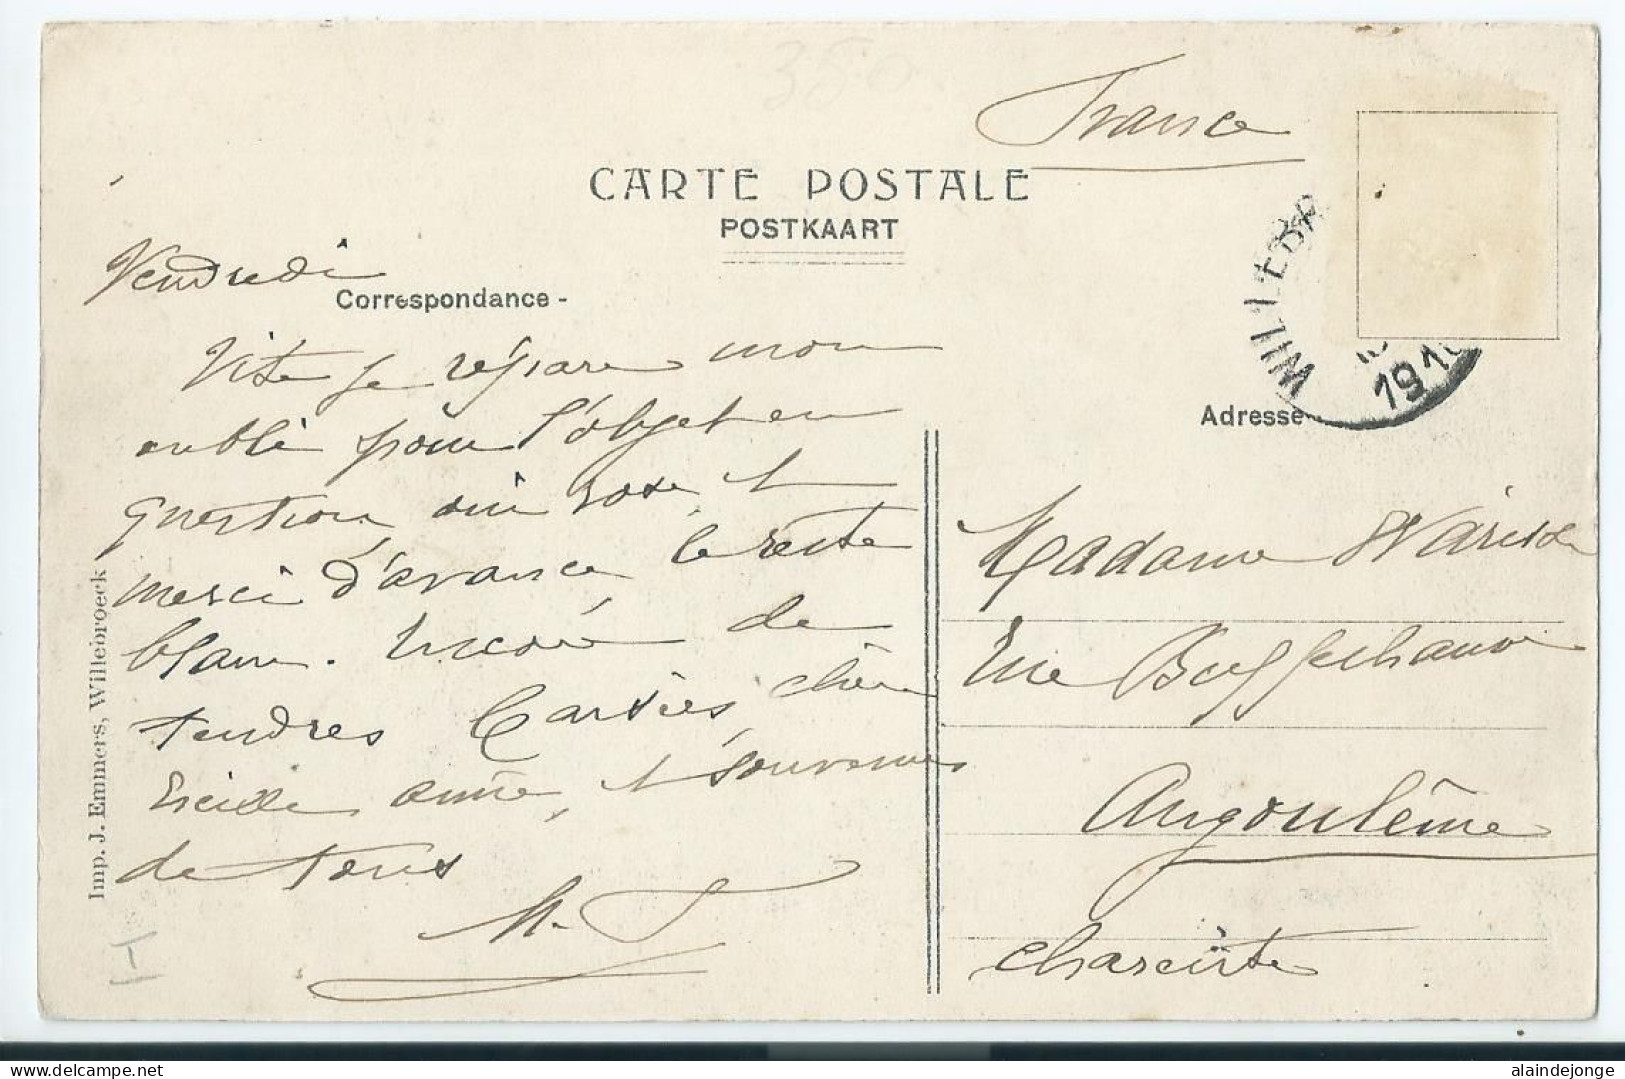 350
France
CARTE POSTALE
POSTKAART
WILLEBR
1910
Vendredi
Correspondance -
Vite je répare mon
oubli pour l'objet en
question, oui rose, et
merci d'avance le reste
blanc. de
tendres chère
vieille amie, et souvenirs
de tous
M. J.
Adresse
Madame
rue
Angoulême
Charente
Imp. J. Emmers, Willebroeck
I
alaindejonge